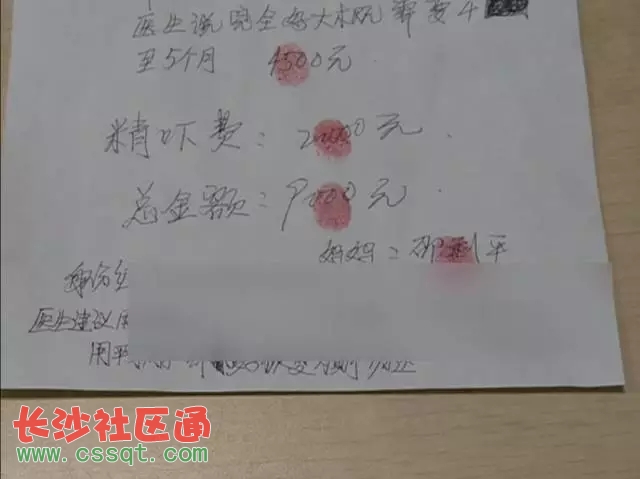 医生说完全好大概需要4
至5个月 4500元
精吓费：20000元.
总金额：90000元.
妈妈：邵利平
身份
医生建议用
用
长沙社区通
www.cssqt.com